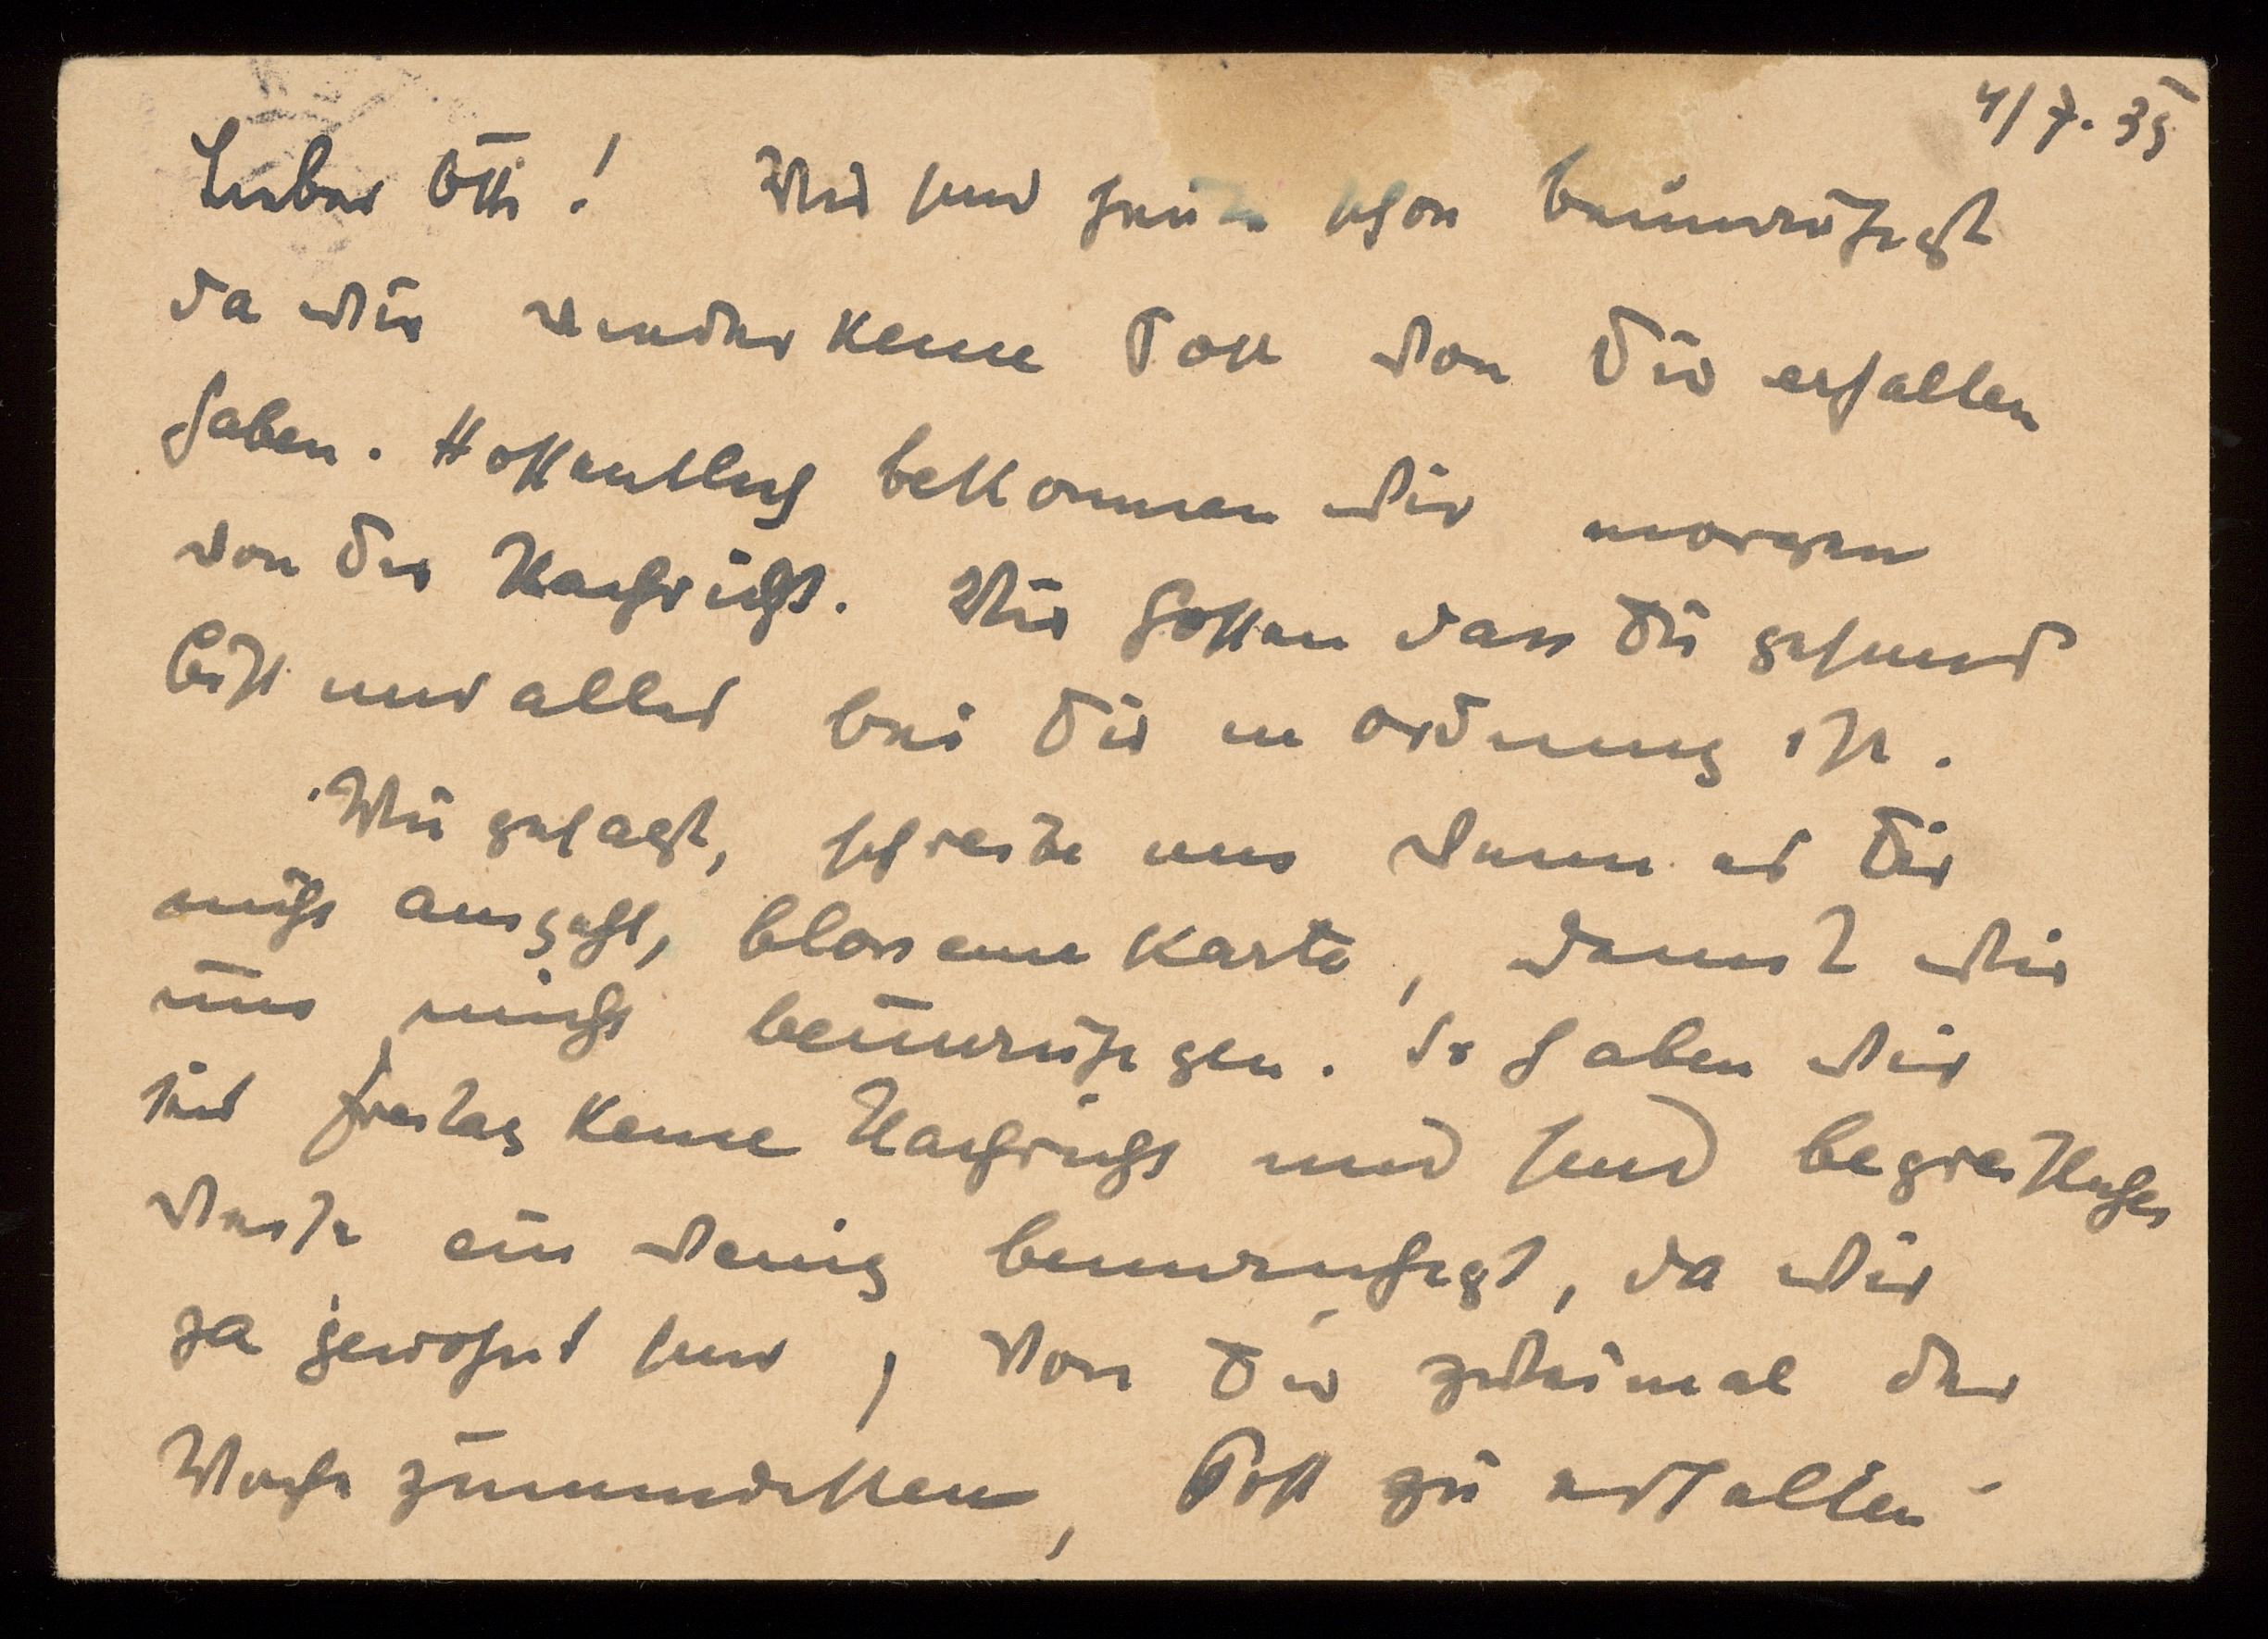 4/7. 35
Lieber Otti! Wir sind heute schon beunruhigt
da wir wieder keine Post von Dir erhalten
haben. Hoffentlich bekommen wir morgen
von Dir Nachricht. Wir hoffen dass Du gesund
bist und alles bei Dir in Ordnung ist.
Wie gesagt, schreibe uns wenn es Dir
nicht ausgeht, bloss eine Karte, damit wir
uns nicht beunruhigen. So haben wir
seit Freitag keine Nachricht und sind begreiflicher
Weise ein wenig beunruhigt, da wir
ja gewohnt sind, von Dir zweimal der
Woche zumindesten, Post zu erhalten